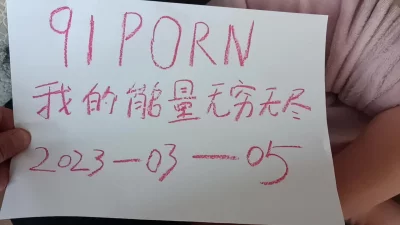 91PORN
我的能量无穷无尽
2023-03-05